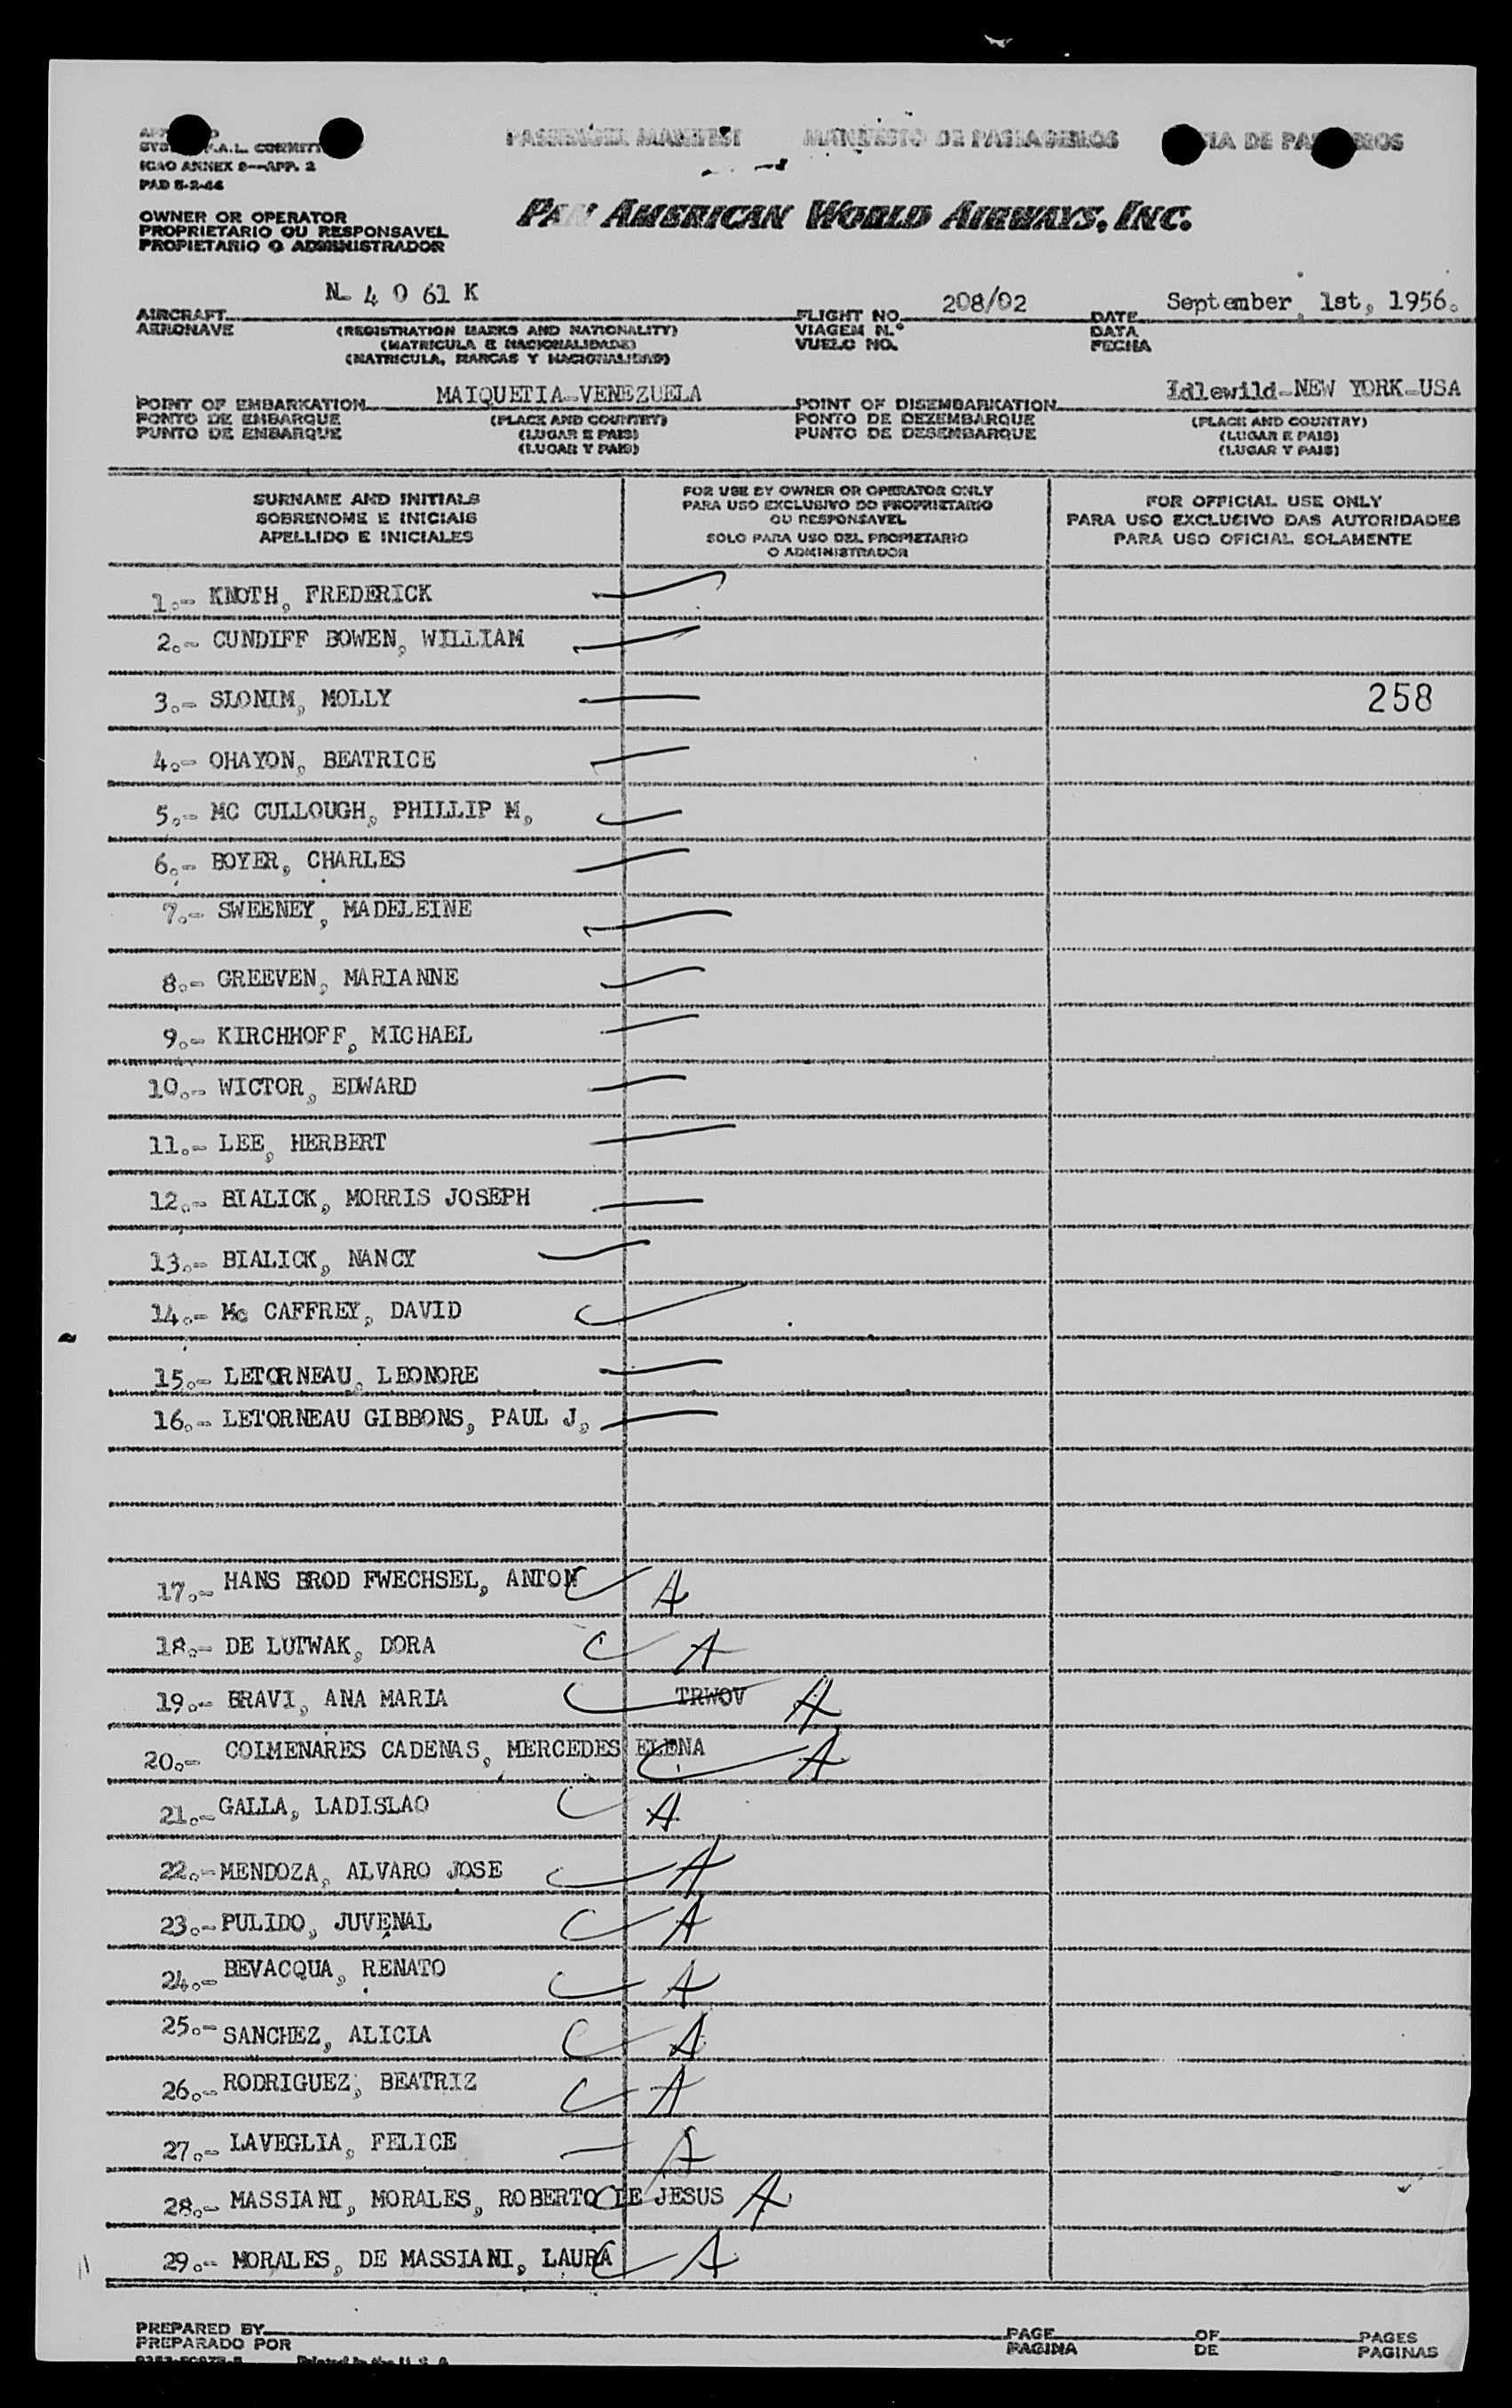 PASSENGER MANIFEST MANIFESTO DE PASSAGEIROS DE
F.A.L. COMMITT
ICAO ANNEX 9--APP. 2
PAD 5-2-44
OWNER OR OPERATOR
PROPRIETARIO OU RESPONSAVEL
PROPIETARIO O ADMINISTRADOR
PAN AMERICAN WORLD AIRWAYS, INC.
N- 4 0 61 K
208/02
September, 1st, 1956.
AIRCRAFT FLIGHT NO. DATE
AERONAVE (REGISTRATION MARKS AND NATIONALITY) VIAGEM N.° DATA
(MATRICULA E NACIONALIDADE) VUELO NO. FECHA
(MATRICULA, MARCAS Y NACIONALIDAD)
MAIQUETIA-VENEZUELA
Idlewild-NEW YORK-USA
POINT OF EMBARKATION POINT OF DISEMBARKATION
PONTO DE EMBARQUE (PLACE AND COUNTRY) PONTO DE DEZEMBARQUE (PLACE AND COUNTRY)
PUNTO DE EMBARQUE (LUGAR E PAIS) PUNTO DE DESEMBARQUE (LUGAR E PAIS)
(LUGAR Y PAIS) (LUGAR Y PAIS)
SURNAME AND INITIALS
SOBRENOME E INICIAIS
APELLIDO E INICIALES
FOR USE BY OWNER OR OPERATOR ONLY
PARA USO EXCLUSIVO DO PROPRIETARIO
OU RESPONSAVEL
SOLO PARA USO DEL PROPIETARIO
O ADMINISTRADOR
FOR OFFICIAL USE ONLY
PARA USO EXCLUSIVO DAS AUTORIDADES
PARA USO OFICIAL SOLAMENTE
1.- KNOTH, FREDERICK
2.- CUNDIFF BOWEN, WILLIAM
3.- SLONIM, MOLLY 258
4.- OHAYON, BEATRICE
5.- MC CULLOUGH, PHILLIP M,
6.- BOYER, CHARLES
7.- SWEENEY, MADELEINE
8.- GREEVEN, MARIANNE
9.- KIRCHHOFF, MICHAEL
10.- WICTOR, EDWARD
11.- LEE, HERBERT
12.- BIALICK, MORRIS JOSEPH
13.- BIALICK, NANCY
14.- Mc CAFFREY, DAVID
15.- LETORNEAU, LEONORE
16.- LETORNEAU GIBBONS, PAUL J,
17.- HANS BROD FWECHSEL, ANTON A
18.- DE LUTWAK, DORA A
19.- BRAVI, ANA MARIA TRWOV A
20.- COLMENARES CADENAS, MERCEDES ELENA A
21.- GALLA, LADISLAO A
22.- MENDOZA, ALVARO JOSE A
23.- PULIDO, JUVENAL A
24.- BEVACQUA, RENATO A
25.- SANCHEZ, ALICIA A
26.- RODRIGUEZ, BEATRIZ A
27.- LAVEGLIA, FELICE A
28.- MASSIANI, MORALES, ROBERTO DE JESUS A
29.- MORALES, DE MASSIANI, LAURA A
PREPARED BY PAGE OF PAGES
PREPARADO POR PAGINA DE PAGINAS
Printed in the U. S. A.